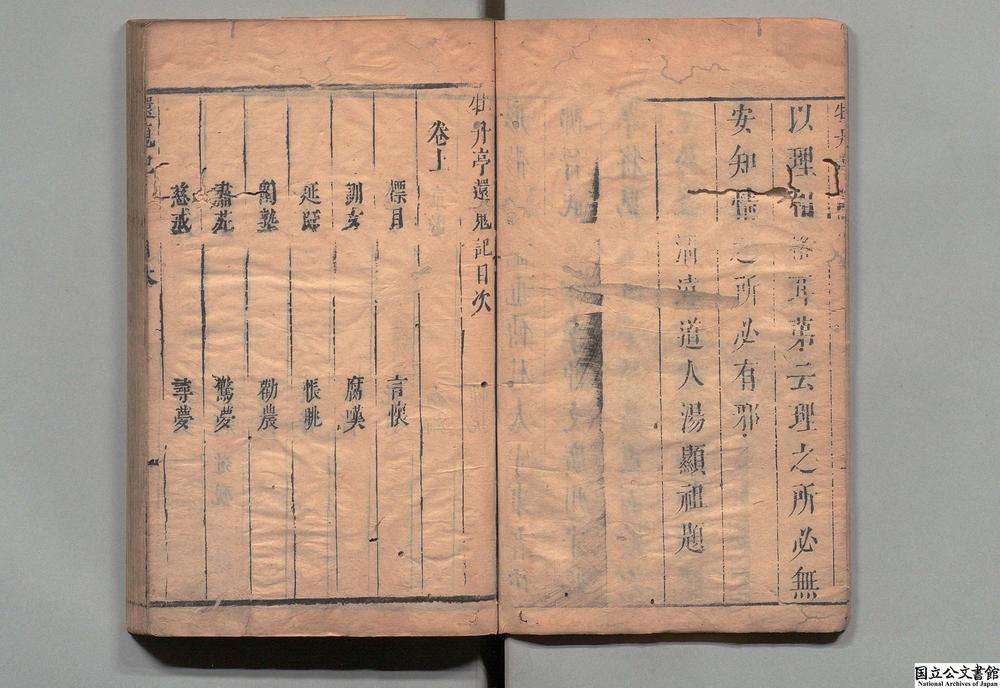 以理相格耳第云理之所必無
安知情之所必有邪
清遠道人湯顯祖題
牡丹亭還魂記目次
卷上
標目
言懷
訓女
腐嘆
延師
悵眺
閨塾
勸農
肅苑
驚夢
慈戒
尋夢
還魂記
国立公文書館
National Archives of Japan